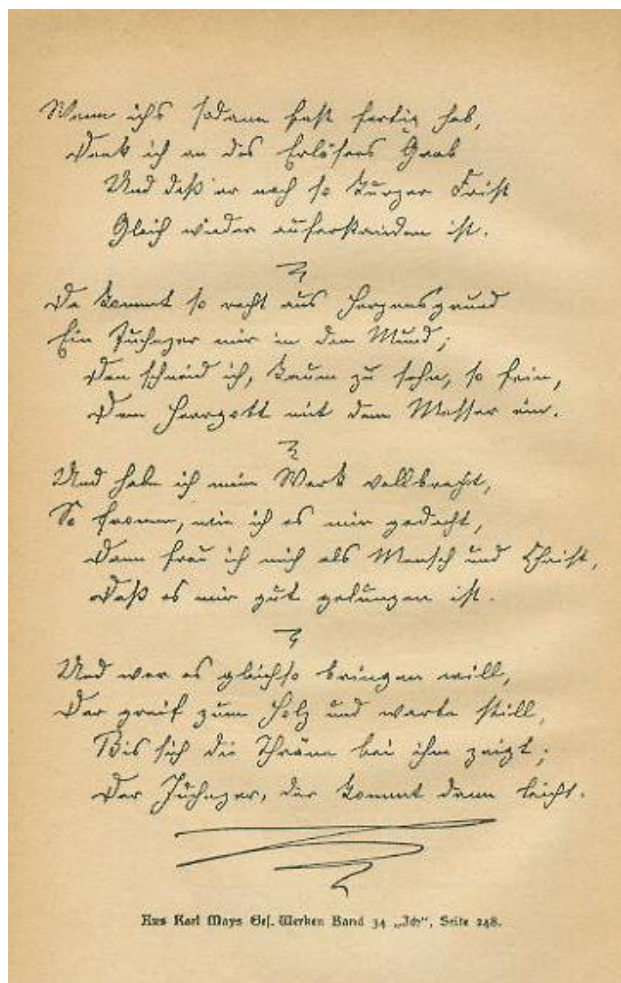 Wenn ichs sodann fast fertig hab,
Denk ich an des Erlösers Grab
Und daß er nach so kurzer Frist
Gleich wieder auferstanden ist.
Da kommt so recht aus Herzensgrund
Ein Juchezer mir in den Mund;
Den schneid ich, kaum zu sehn, so fein,
Dem Herrgott mit dem Messer ein.
Und habe ich mein Werk vollbracht,
So fromm, wie ich es mir gedacht,
Dann freu ich mich als Mensch und Christ,
Daß es mir gut gelungen ist.
Und wer es gleichso bringen will,
Der greif zum Holz und warte still,
Bis sich die Thräne bei ihm zeigt;
Der Juchezer, der kommt dann leicht.
Aus Karl Mays Ges. Werken Band 34 „Ich“, Seite 248.